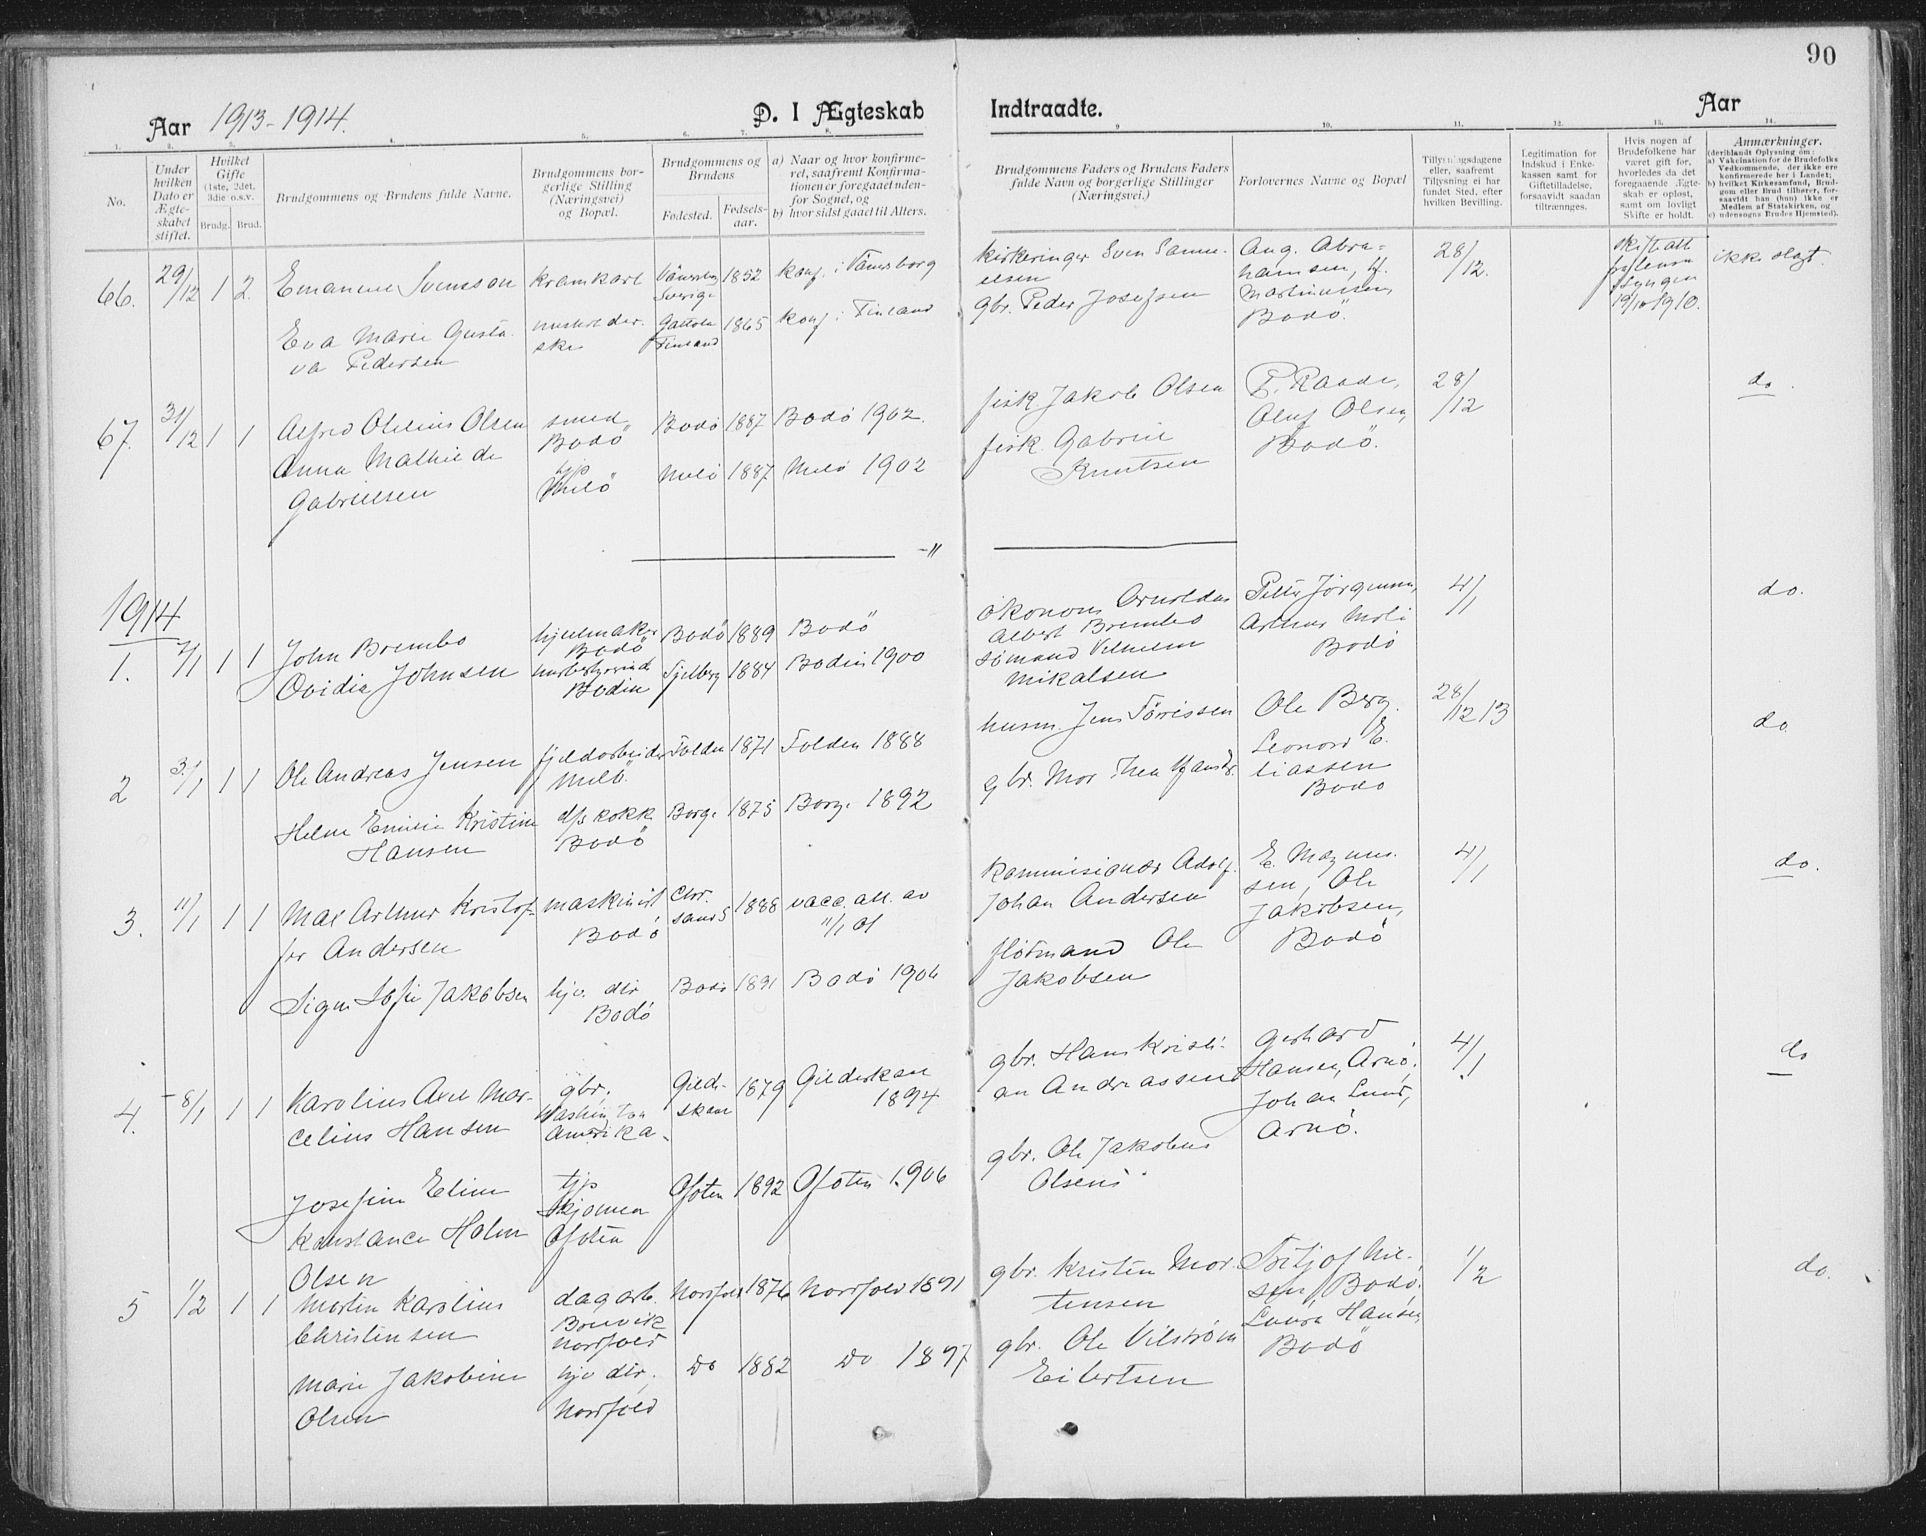 90
Aar 1913-1914.
D. I Ægteskab
Indtraadte.
Aar
1. 2. 3. 4. 5. 6. 7. 8. 9 10. 11. 12. 13. 14.
No.
Under hvilken Dato er Ægteskabet stiftet.
Hvilket Gifte (1ste, 2det. 3die o.s.v.
Brudg. Brud.
Brudgommens og Brudens fulde Navne.
Brudgommens borgerlige Stilling (Næringsvei) og Bopæl.
Brudgommens og Brudens
Fødested. Fødselsaar.
a) Naar og hvor konfirmeret, saafremt Konfirmationen er foregaaet udenfor Sognet, og
b) hvor sidst gaaet til Alters.
Brudgommens Faders og Brudens Faders fulde Navn og borgerlige Stillinger (Næringsvei.)
Forlovernes Navne og Bopæl
Tillysningsdagene eller, saafremt Tillysning ei har fundet Sted, efter hvilken Bevilling.
Legitimation for Indskud i Enkekassen samt for Giftetilladelse, forsaavidt saadan tiltrænges.
Hvis nogen af Brudefolkene har været gift for, hvorledes da det foregaaende Ægteskab er opløst, samt om lovligt Skifte er holdt.
Anmærkninger.
(deriblandt Oplysning om:
a) Vakcination for de Brudefolks Vedkommende, der ikke ere konfirmerede her i Landet;
b) hvilket Kirkesamfund, Brudgom eller Brud tilhører, forsaavidt han (hun) ikke er Medlem af Statskirken, og
c) udensogns Brudes Hjemsted).
66. 29/12 1 2. Emanuel Svensson kramkarl Vänersborg Sverige 1852 konf. i Vänersborg
Kirkeringer Sven Samuelsen Aug. Abrahamsen, H. Martinussen, Bodö. 28/12. 19/10 1910. ikke slegt.
Eva Marie Gustava Pedersen Finland 1865 konf. i Finland
gbr. Peder Josefsen
67. 31/12 1 1 Alfred Olelius Olsen smed, Bodö Bodö 1887 Bodö 1902.
fisk. Jakob Olsen P. Raade, Oluf Olsen, Bodö. 28/12 do.
Anna Mathilde Gabrielsen tjp 1887 1902
fisk. Gabriel Knutsen
1914
1. 1/1 1 1 John Brembo hjulmaker Bodö Bodö 1889 Bodö
økonom Arnoldus Albert Brembo Petter Jörgensen, Arthur Moli Bodö 4/1 do.
Ovidia Johnsen Bodin Fjelberg 1884 Bodin 1900
sömand Vilhelm Mikalsen
2 3/1 1 1 Ole Andreas Jensen fjeldarbeider Folden 1871 Folden 1888
husm. Jens Törrissen Ole Berg. Leonard Eliassen Bodö 28/12 13 do
Helene Emilie Kristine Hansen d/s kokk Bodö Borge 1875 Borge 1892
gbr. Mor Hansen
3. 11/1 1 1 Max Arthur Kristoffer Andersen maskinist Bodö Chr.sand S 1888 vacc. att. av 11/1 01
kommisionær Adolf Johan Andersen E. Magnussen, Ole Jakobsen, Bodö 4/1 do.
Signe Sofie Jakobsen hjv. dtr Bodö Bodö 1891 Bodö 1906
flötmand Ole Jakobsen
4. 18/1 1 1 Karolius Axel Marcelius Hansen gbr, Washington Amerika. Gildeskaal 1879 Gildeskaal 1894
gbr. Hans Kristian Andreassen Gerhard Hansen, Arnö, Johan Lund, Arnö. 4/1 do
Josefine Eline Konstance Holm Olsen tjp Skjomen Ofoten Ofoten 1892 Ofoten 1906
gbr. Ole Jakobus Olsen
5 1/2 1 1 Morten Karolius Christensen dagarb. Brevik Nordfold Nordfold 1876 Nordfold 1891
gbr. Kristen Mortensen Fritjof Nilsen, Bodö. Laura Hansen, Bodö 1/2 do.
Marie Jakobine Olsen hjv dtr, Nordfold do 1882 do 1897
gbr. Ole Vilström Eibertsen